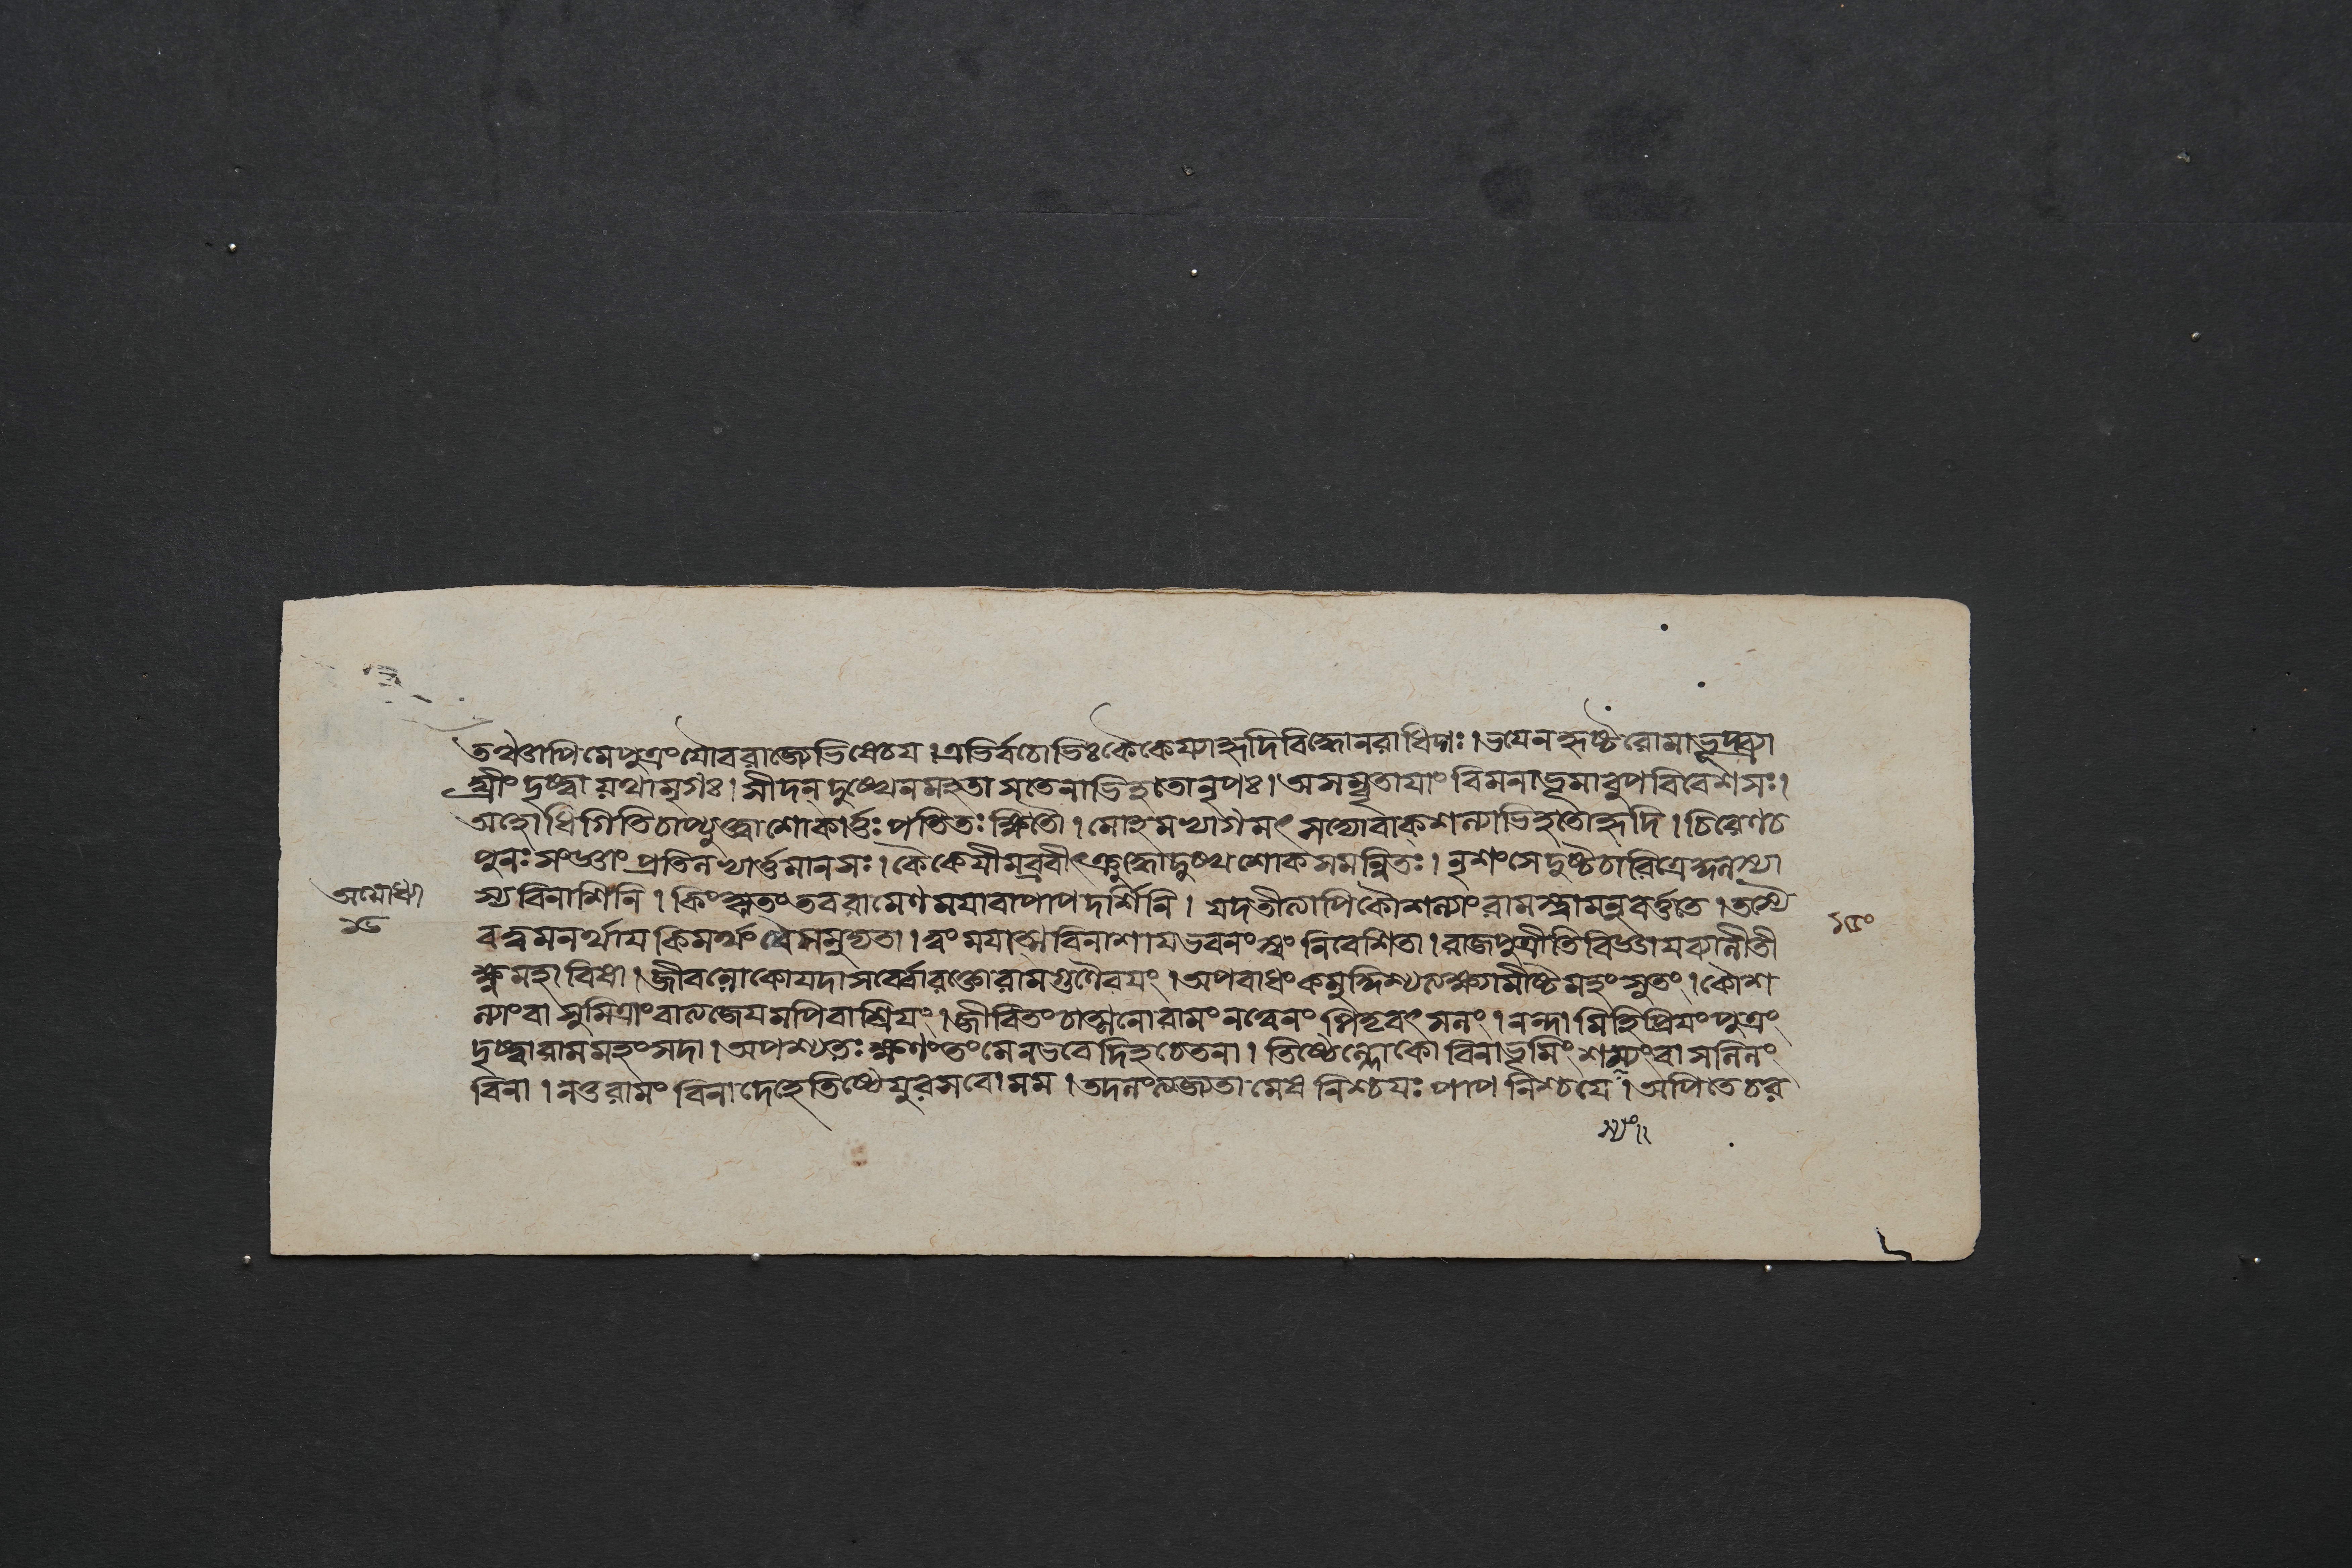 তঞ্চাপি মে পুত্রং যৌবরাজ্যেভিষেচয। এভির্বচোভিঃ কৈকেয্যা হৃদি বিদ্ধো নরাধিপঃ। ভযেন হৃষ্টরোমাভূদ্ব্যা
ঘ্রীং দৃষ্ট্বা যথা মৃগঃ। সীদন্ দুঃখেন মহতা স তেনাভিহতো নৃপঃ। অসম্বৃতাযাং বিমনা ভূমাবুপবিবেশ সঃ।
অহো ধিগিতি চাপ্যুক্ত্বা শোকার্ত্তঃ পতিতঃ ক্ষিতৌ। মোহমভ্যাগমৎ সদ্যো বাক্শল্যাভিহতো হৃদি। চিরেণ চ
পুনঃ সংজ্ঞাং প্রতিলভ্যার্ত্তমানসঃ। কৈকেযীমব্রবীৎ ক্রুদ্ধো দুঃখশোকসমন্বিতঃ। নৃশংসে দুষ্টচারিত্রে কুলস্যা
স্য বিনাশিনি। কিং কৃতং তব রামেণ মযা বা পাপদর্শিনি। যদতীত্যাপি কৌশল্যাং রামস্ত্বামনুবর্ত্ততে। তস্যৈ
অযোধ্যা
১৫০
ব ত্বমনর্থায কিমর্থং বৈ সমুদ্যতা। ত্বং মযাত্মবিনাশায ভবনং স্বং নিবেশিতা। রাজপুত্রীতি বিজ্ঞায ব্যালীতী
ক্ষ্ণমহাবিষা। জীবলোকো যদা সর্ব্বো রক্তো রামগুণৈরযং। অপরাধং কমুদ্দিশ্য ত্যক্ষ্যামীষ্টমহং সুতং। কৌশ
ল্যাং বা সুমিত্রাং বা ত্যজেযমপি বা শ্রিযং। জীবিতং চাত্মনো রামং নত্বেবং পিতৃবৎসলং। নন্দামি হি প্রিযং পুত্রং
দৃষ্ট্বা রামমহং সদা। অপশ্যতঃ ক্ষণং তং মে ন ভবেদিহ চেতনা। তিষ্ঠেল্লোকো বিনা ভূমিং শস্যং বা সলিলং
বিনা। ন তু রামং বিনা দেহে তিষ্ঠেযুরসবো মম। তদলং ত্যজ্যতামেষ নিশ্চযঃ পাপনিশ্চযে। অপি তে চর
স্যং॥